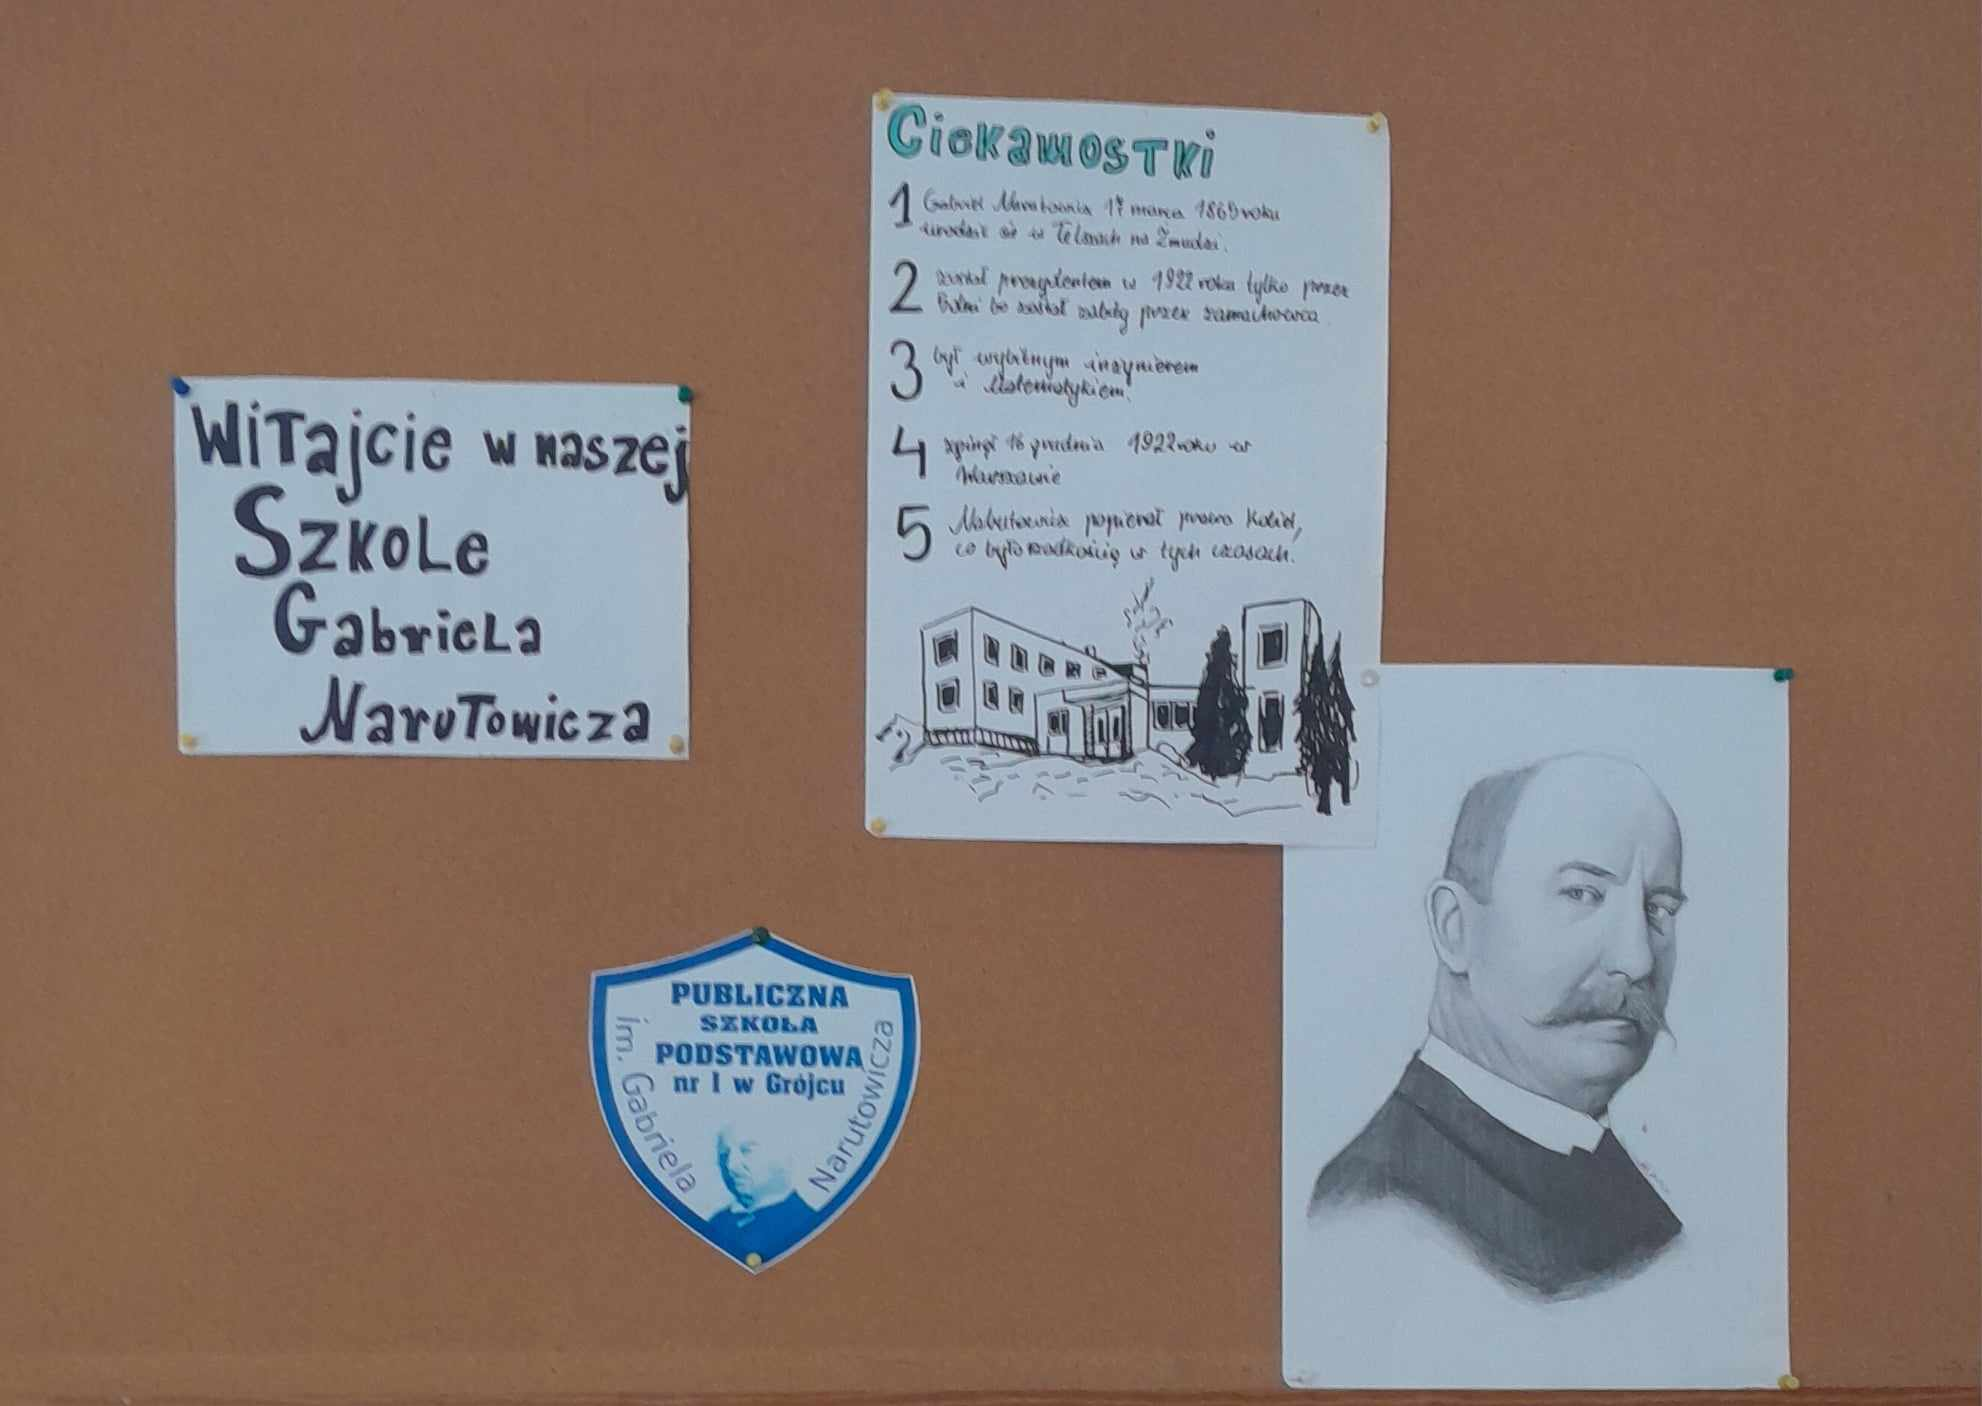 Witajcie w naszej
Szkole
Gabriela
Narutowicza
Ciekawostki
1 Gabriel Narutowicz 17 marca 1865 roku
urodził się w Telszach na Żmudzi.
2 został prezydentem w 1922 roku tylko przez
5 dni bo został zabity przez zamachowca.
3 był wybitnym inżynierem
i Matematykiem.
4 zginął 16 grudnia 1922 roku w
Warszawie
5 Narutowicz popierał prawa kobiet,
co było rzadkością w tych czasach.
PUBLICZNA
SZKOŁA
PODSTAWOWA
nr 1 w Grójcu
im. Gabriela
Narutowicza